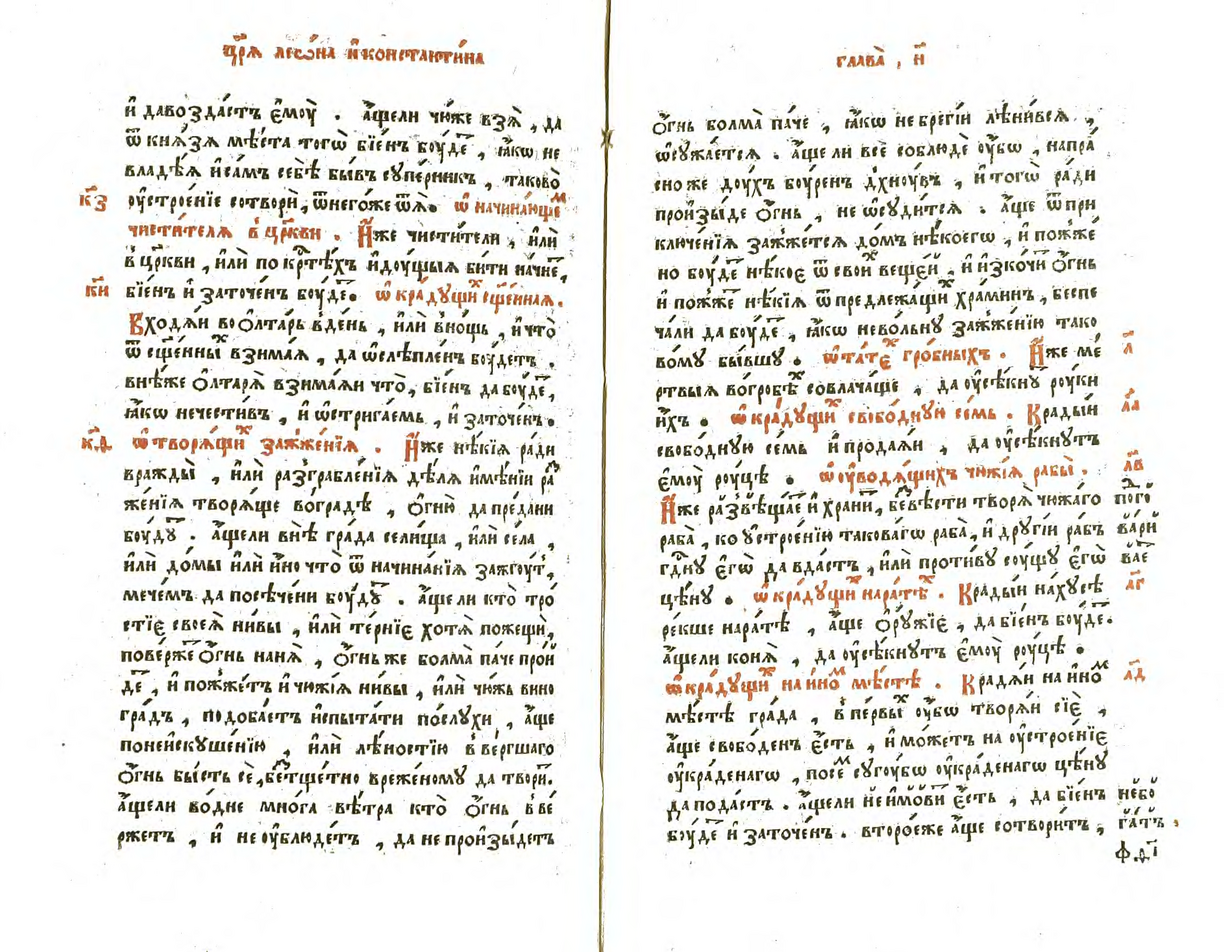 цр҃ѧ леѡ́на и҆ конста́нтї́на
и҆ давозда́стъ є҆моу̀ . а҆́щели чю́же взѧ̀ , да
ѿ кнѧ́зѧ мѣ́ста тогѡ̀ бїе́нъ боу́де , ꙗ҆́кѡ не
владѣ́ѧ и҆са́мъ себѣ̀ бы́въ су́перникъ , таково̀
к҃з
оу҆строе́нїе сотворѝ , ѿнегѡ́же ѿѧ̀. ѡ҆ начина́юще
чисти́телѧ в҆ цр҃кви . И҆́же чисти́тели , и҆лѝ
в҆ цр҃кви , и҆лѝ по кр҇тѣ́хъ и҆доу́щыѧ би́ти на́чне ,
к҃и
бїе́нъ и҆ заточе́нъ боу́де. ѡ҆ кра́дущи сщ҃е́ннаѧ.
Входѧ́и во ѻ҆лта́рь в де́нь , и҆лѝ в но́щь , и҆ что̀
ѿ сщ҃е́нны взима́ѧ , да ѡ҆слѣпле́нъ боу́детъ .
внѣ́же ѻ҆лтарѧ̀ взима́ѧи что̀, бїе́нъ да боу́де ,
ꙗ҆́кѡ нечести́въ , и҆ ѡ҆стрига́емь , и҆ заточе́нъ.
к҃д
ѡ҆ творѧ́щи зажже́нїѧ . И҆́же нѣ́кїѧ ра́ди
вражды̀ , и҆лѝ разграбле́нїѧ дѣ́лѧ и҆мѣ́нїи ра
же́нїѧ творѧ́ще во гра́дѣ , ѻ҆гню̀ да пре́дани
боу́ду . а҆́щели внѣ̀ гра́да се́лища , и҆лѝ села̀ ,
и҆лѝ до́мы и҆лѝ и҆́но что̀ ѿ начина́нїѧ зажгоу́т ,
мече́мъ да посѣ́чени боу́ду . а҆́ще ли кто̀ тро́
стїє своеѧ̀ ни́вы , и҆лѝ те́рнїє хотѧ̀ пожещѝ ,
пове́рже ѻ҆́гнь на нѧ̀ , ѻ҆́гнь же бо́лма па́че прои́
де , и҆ пожже́тъ и҆ чюжїѧ ни́вы , и҆лѝ чю́жь вино
гра́дъ , подоба́етъ и҆спыта́ти по́слухи , а҆́ще
по неискуше́нїю , и҆лѝ лѣ́ностїю в҆ве́ргшаго
ѻ҆́гнь бы́сть се , бестще́тно вреже́ному да твори.
а҆́щели во́дне мно́га вѣ́тра кто̀ ѻ҆́гнь в҆ве́
ржетъ , и҆ не оу҆блюде́тъ , да не прои́зы́детъ
глава̀ , и҃
ѻ҆́гнь бо́лма па́че , ꙗ҆́кѡ не бреги́и лѣ́нивсѧ ,
ѡ҆сужа́етсѧ . а҆́ще ли всѐ соблюдѐ оу҆́бѡ , напра́
сно же доу́хъ боу́ренъ дхноу́въ , и҆ тогѡ̀ ра́ди
прои́зы́де ѻ҆́гнь , не ѡ҆су́дитсѧ . а҆́ще ѿ при
ключе́нїѧ зажже́тсѧ до́мъ нѣ́коегѡ , и҆ пожже
но боу́де нѣ́коє ѿ свои веще́й , и҆ и҆зско́чи ѻ҆́гнь
и҆ пожжѐ нѣ́кїѧ ѿ предлежа́щи хра́минъ , беспе
ча́ли да боу́де , ꙗ҆́кѡ нево́льну зажже́нїю тако
во́му бы́вшу . ѡ҆ та́те гро́бныхъ . И҆́же ме́
л҃
ртвыѧ во гро́бѣ совлача́ше , да оу҆сѣкну́ роу́ки
и҆́хъ . ѡ҆ кра́дущи свобо́дную се́мь . Кра́дый
л҃а
свобо́дную се́мь и҆ продаѧ́и , да оу҆сѣкну́тъ
є҆моу̀ роу́цѣ . ѡ҆ оу҆водѧ́щихъ чюжїѧ рабы̀ .
л҃в
И҆́же развѣща́е и҆ хранѝ , безвѣ́сти творѧ̀ чюжа́го
раба̀ , ко устрое́нїю таковагѡ раба̀ , и҆ другі́и рабъ
гд҇ну є҆гѡ̀ да вда́стъ , и҆лѝ проти́ву соу́щу є҆гѡ̀
цѣ́ну . ѡ҆ кра́дущи на ра́тѣ . Кра́дый на ху́сѣ
л҃г
ре́кше на ра́тѣ , а҆́ще ѻ҆ру́жїє , да бїе́нъ боу́де.
а҆́щели конѧ̀ , да оу҆сѣкну́тъ є҆моу̀ роу́цѣ .
ѡ҆ кра́дущи на и҆но мѣ́стѣ . Крадѧ́и на и҆но
л҃д
мѣ́стѣ гра́да , в҆ пе́рвы оу҆́бѡ творѧ́и сїѐ ,
а҆́ще свобо́денъ є҆́сть , и҆ мо́жетъ на оу҆строе́нїє
оу҆кра́денагѡ , посе сугоу́бѡ оу҆кра́денагѡ цѣ́ну
да пода́стъ . а҆́щели не и҆мо́ви є҆́сть , да бїе́нъ
боу́де и҆ заточе́нъ . второ́еже а҆́ще сотвори́тъ ,